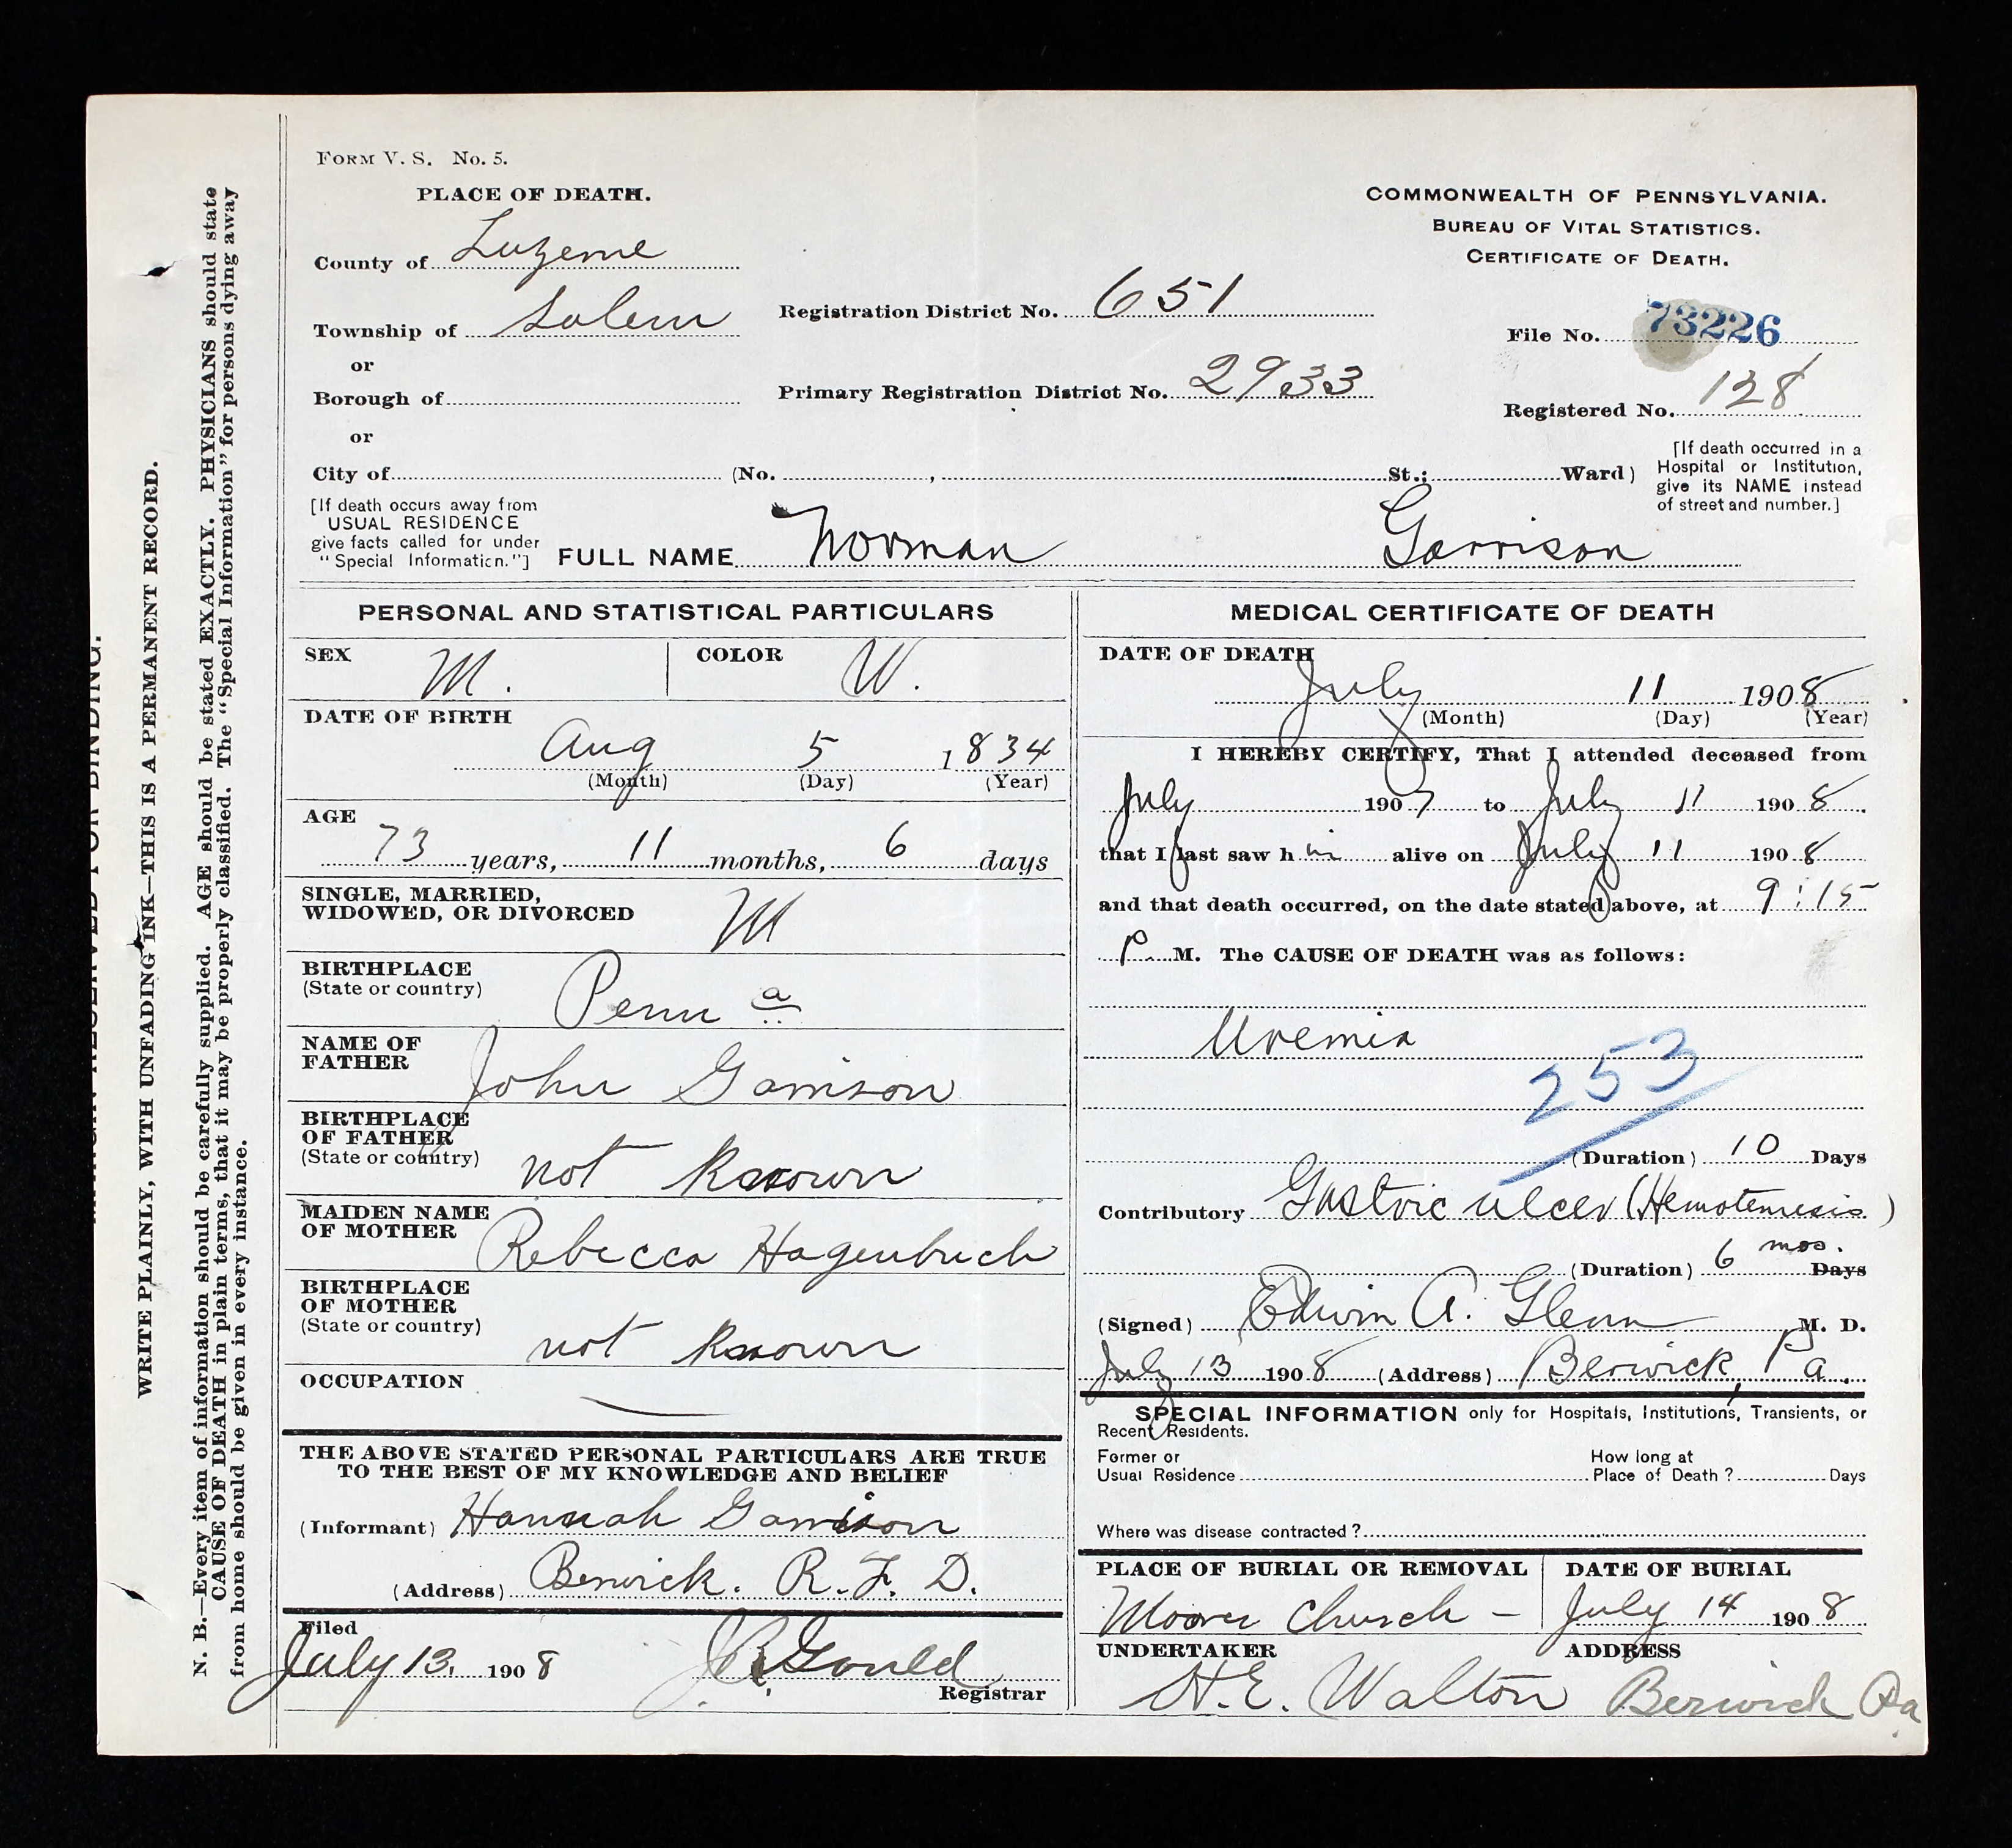 FORM V. S. No. 5.
PLACE OF DEATH.
County of Luzerne
Township of Salem
or
Borough of
or
City of (No. , St.; Ward)
Registration District No. 651
Primary Registration District No. 2933
COMMONWEALTH OF PENNSYLVANIA.
BUREAU OF VITAL STATISTICS.
CERTIFICATE OF DEATH.
File No. 73226
Registered No. 128
[If death occurred in a
Hospital or Institution,
give its NAME instead
of street and number.]
[If death occurs away from
USUAL RESIDENCE
give facts called for under
"Special Information."]
FULL NAME Norman Garrison
PERSONAL AND STATISTICAL PARTICULARS
SEX M. COLOR W.
DATE OF BIRTH
Aug 5 1834
(Month) (Day) (Year)
AGE
73 years, 11 months, 6 days
SINGLE, MARRIED,
WIDOWED, OR DIVORCED M
BIRTHPLACE
(State or country) Penn a
NAME OF
FATHER John Garrison
BIRTHPLACE
OF FATHER
(State or country) not known
MAIDEN NAME
OF MOTHER Rebecca Hagenbuch
BIRTHPLACE
OF MOTHER
(State or country) not known
OCCUPATION
THE ABOVE STATED PERSONAL PARTICULARS ARE TRUE
TO THE BEST OF MY KNOWLEDGE AND BELIEF
(Informant) Hannah Garrison
(Address) Berwick. R. F. D.
Filed
July 13, 1908 Gould
Registrar
MEDICAL CERTIFICATE OF DEATH
DATE OF DEATH
July 11 1908
(Month) (Day) (Year)
I HEREBY CERTIFY, That I attended deceased from
July 1907 to July 11 1908
that I last saw him alive on July 11 1908
and that death occurred, on the date stated above, at 9:15
P M. The CAUSE OF DEATH was as follows:
Uremia
253
(Duration) 10 Days
Contributory Gastric ulcer (Hemotemesis)
(Duration) 6 mos. Days
(Signed) Edwin A. Glenn M. D.
July 13 1908 (Address) Berwick, Pa.
SPECIAL INFORMATION only for Hospitals, Institutions, Transients, or
Recent Residents.
Former or
Usual Residence
How long at
Place of Death? Days
Where was disease contracted?
PLACE OF BURIAL OR REMOVAL
Moore Church –
DATE OF BURIAL
July 14 1908
UNDERTAKER
H. E. Walton
ADDRESS
Berwick Pa
WRITE PLAINLY, WITH UNFADING INK—THIS IS A PERMANENT RECORD.
N. B.—Every item of information should be carefully supplied. AGE should be stated EXACTLY. PHYSICIANS should state
CAUSE OF DEATH in plain terms, that it may be properly classified. The "Special Information" for persons dying away
from home should be given in every instance.